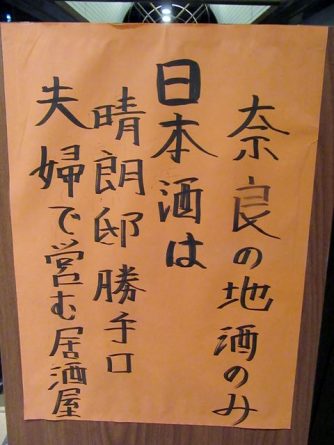 奈良の地酒のみ
日本酒は
晴朗邸勝手口
夫婦で営む居酒屋